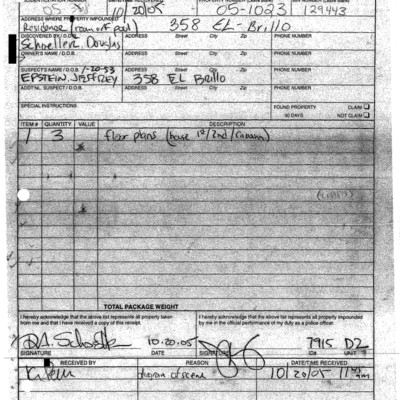 05 10/20/05 05-10231 129443
ADDRESS WHERE PROPERTY IMPOUNDED
Residence 358 EL-Brillo
DISCOVERED BY / D.O.B. ADDRESS Street City Zip PHONE NUMBER
Schoeller, Douglas
OWNER'S NAME / D.O.B. ADDRESS Street City Zip PHONE NUMBER
SUSPECT'S NAME / D.O.B. 1-20-53 ADDRESS Street City Zip PHONE NUMBER
EPSTEIN, JEFFREY 358 EL Brillo
ADDT'NL SUSPECT / D.O.B. ADDRESS Street City Zip PHONE NUMBER
SPECIAL INSTRUCTIONS FOUND PROPERTY CLAIM
90 DAYS NOT CLAIM
ITEM # QUANTITY VALUE DESCRIPTION
1 3 floor plans (house 1st/2nd/cabana)
TOTAL PACKAGE WEIGHT
I hereby acknowledge that the above list represents all property taken from me and that I have received a copy of this receipt.
I hereby acknowledge that the above list represents all property impounded by me in the official performance of my duty as a police officer.
10.20.05 7915 D2
SIGNATURE DATE SIGNATURE ID# UNIT
RECEIVED BY REASON DATE/TIME RECEIVED
10/20/05